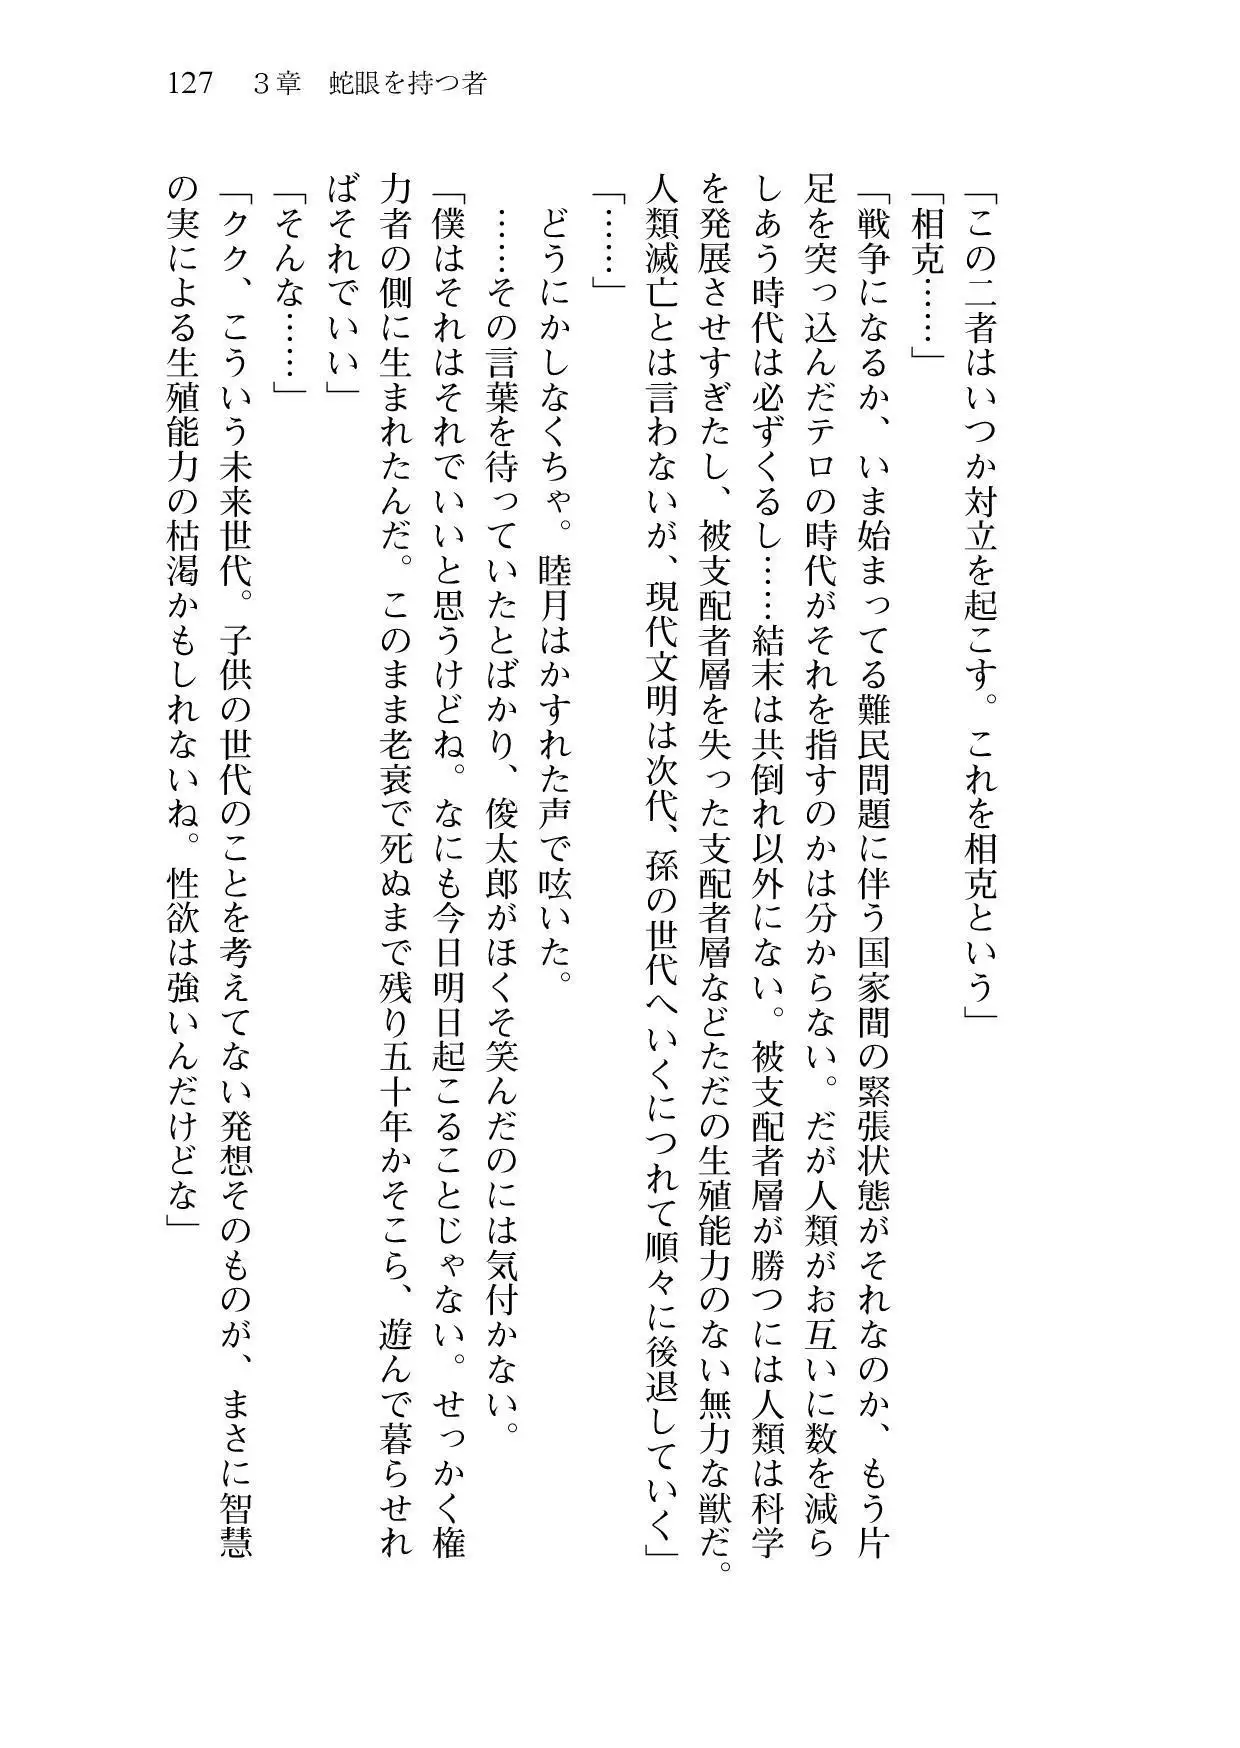 127　３章　蛇眼を持つ者
「この二者はいつか対立を起こす。これを相克という」
「相克……」
「戦争になるか、いま始まってる難民問題に伴う国家間の緊張状態がそれなのか、もう片
足を突っ込んだテロの時代がそれを指すのかは分からない。だが人類がお互いに数を減ら
しあう時代は必ずくるし……結末は共倒れ以外にない。被支配者層が勝つには人類は科学
を発展させすぎたし、被支配者層を失った支配者層などただの生殖能力のない無力な獣だ。
人類滅亡とは言わないが、現代文明は次代、孫の世代へいくにつれて順々に後退していく」
「……」
　どうにかしなくちゃ。睦月はかすれた声で呟いた。
　……その言葉を待っていたとばかり、俊太郎がほくそ笑んだのには気付かない。
「僕はそれはそれでいいと思うけどね。なにも今日明日起こることじゃない。せっかく権
力者の側に生まれたんだ。このまま老衰で死ぬまで残り五十年かそこら、遊んで暮らせれ
ばそれでいい」
「そんな……」
「クク、こういう未来世代。子供の世代のことを考えてない発想そのものが、まさに智慧
の実による生殖能力の枯渇かもしれないね。性欲は強いんだけどな」